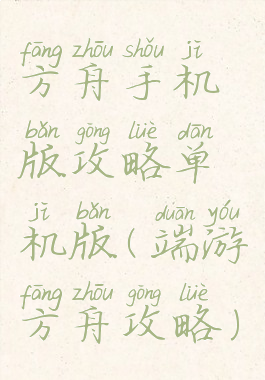 fāng zhōu shǒu jī
方舟手机
bǎn gōng lüè dān
版攻略单
jī bǎn duān yóu
机版(端游
fāng zhōu gōng lüè
方舟攻略)